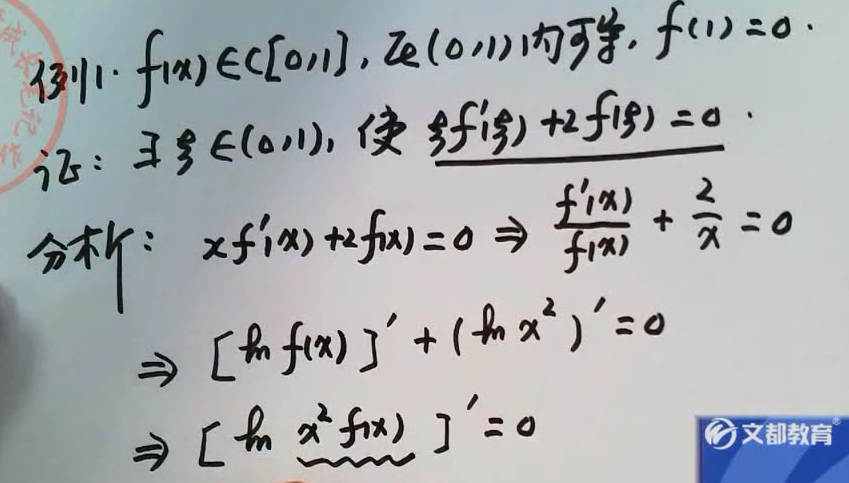 例1. f(x)∈C[0,1], 在(0,1)内可导, f(1)=0.
证: ∃ξ∈(0,1), 使 ξf'(ξ)+2f(ξ)=0.
分析: xf'(x)+2f(x)=0 ⇒ f'(x)/f(x) + 2/x = 0
⇒ [ln f(x)]' + (ln x²)' = 0
⇒ [ln x² f(x)]' = 0
文都教育®